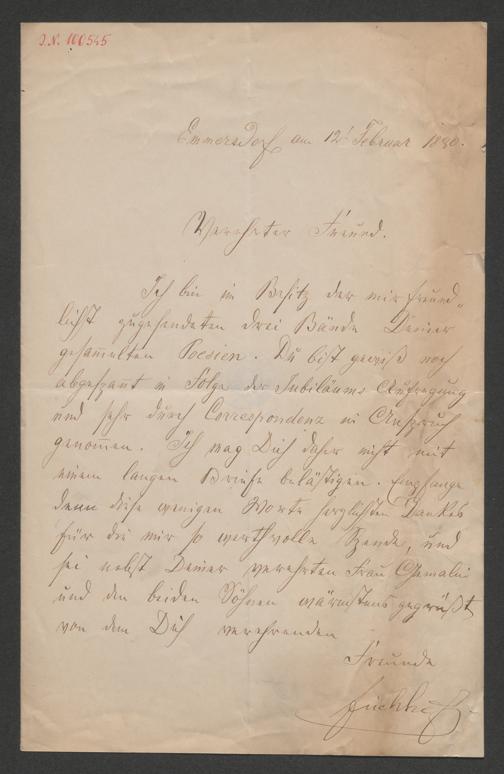 J.N. 100545
Emmersdorf am 12t Februar 1880.
Verehrter Freund.
Ich bin im Besitz der mir freund-
lichst zugesendeten drei Bände Deiner
gesam̄elten Poesien. Du bist gewiß noch
abgespan̄t in Folge der Jubiläums Aufregung
und sehr durch Correspondenz in Anspruch
genom̄en. Ich mag Dich daher nicht mit
einem langen Briefe belästigen. Empfange
denn diese wenigen Worte herzlichsten Dankes
für die mir so werthvolle Spende, und
sei nebst Deiner verehrten Frau Gemalin
und den beiden Söhnen wärmstens gegrüßt
von dem Dich verehrenden
Freunde